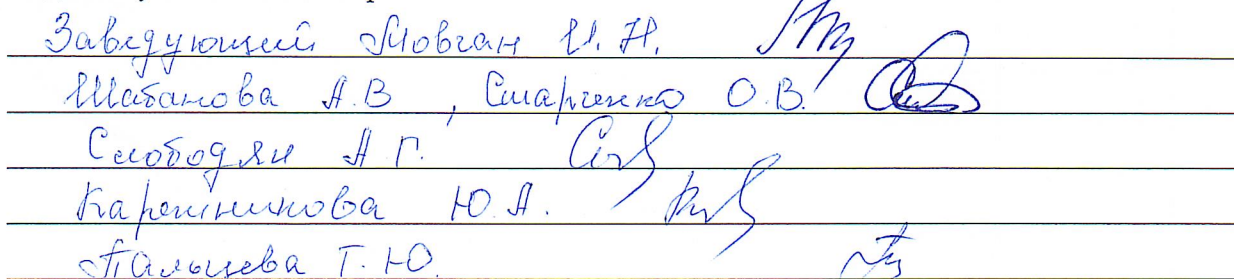 Заведующий Мовчан И. Н.
Шабанова А.В, Старченко О.В.
Слободян А Г.
Карешникова Ю.А.
Пальцева Т.Ю.